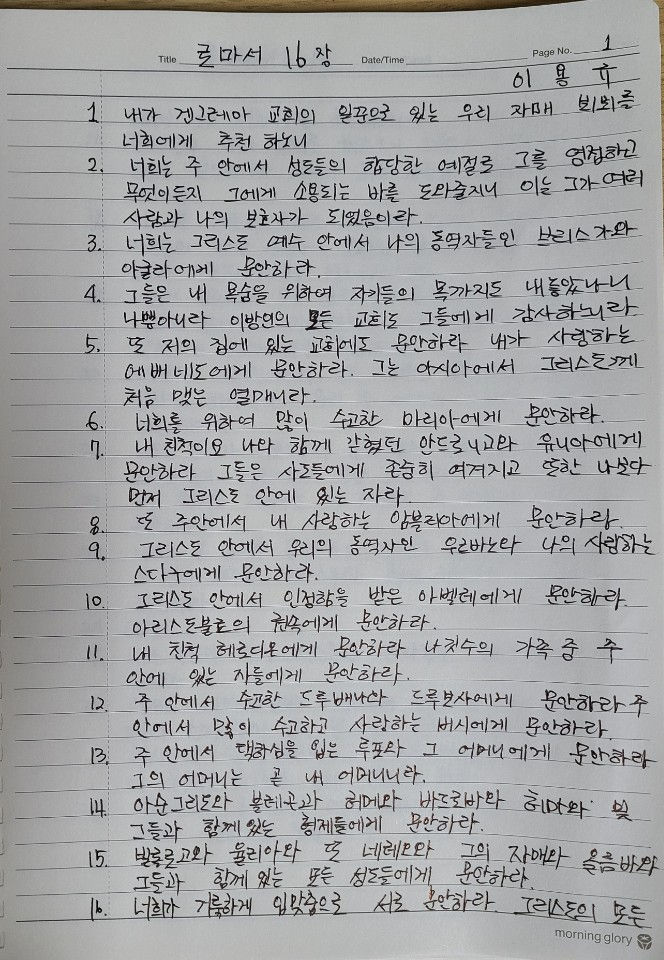 Title 로마서 16장 Date/Time Page No. 1
이용규
1 내가 겐그레아 교회의 일꾼으로 있는 우리 자매 뵈뵈를
너희에게 추천 하노니
2. 너희는 주 안에서 성도들의 합당한 예절로 그를 영접하고
무엇이든지 그에게 소용되는 바를 도와줄지니 이는 그가 여러
사람과 나의 보호자가 되었음이라.
3. 너희는 그리스도 예수 안에서 나의 동역자들인 브리스가와
아굴라에게 문안하라.
4. 그들은 내 목숨을 위하여 자기들의 목까지도 내놓았나니
나뿐아니라 이방인의 모든 교회도 그들에게 감사하느니라
5. 또 저의 집에 있는 교회에도 문안하라 내가 사랑하는
에배네도에게 문안하라. 그는 아시아에서 그리스도께
처음 맺는 열매니라.
6. 너희를 위하여 많이 수고한 마리아에게 문안하라.
7. 내 친척이요 나와 함께 갇혔던 안드로니고와 유니아에게
문안하라 그들은 사도들에게 존중히 여겨지고 또한 나보다
먼저 그리스도 안에 있는 자라.
8. 또 주안에서 내 사랑하는 암블리아에게 문안하라.
9. 그리스도 안에서 우리의 동역자인 우르바노와 나의 사랑하는
스다구에게 문안하라.
10. 그리스도 안에서 인정함을 받은 아벨레에게 문안하라.
아리스도불로의 권속에게 문안하라.
11. 내 친척 헤로디온에게 문안하라 나깃수의 가족 중 주
안에 있는 자들에게 문안하라.
12. 주 안에서 수고한 드루배나와 드루보사에게 문안하라 주
안에서 많이 수고하고 사랑하는 버시에게 문안하라
13. 주 안에서 택하심을 입은 루포와 그 어머니에게 문안하라
그의 어머니는 곧 내 어머니니라.
14. 아순그리도와 블레곤과 허메와 바드로바와 허마와 및
그들과 함께있는 형제들에게 문안하라.
15. 빌롤로고와 율리아와 또 네레오와 그의 자매와 올름바와
그들과 함께 있는 모든 성도들에게 문안하라.
16. 너희가 거룩하게 입맞춤으로 서로 문안하라. 그리스도의 모든
morning glory